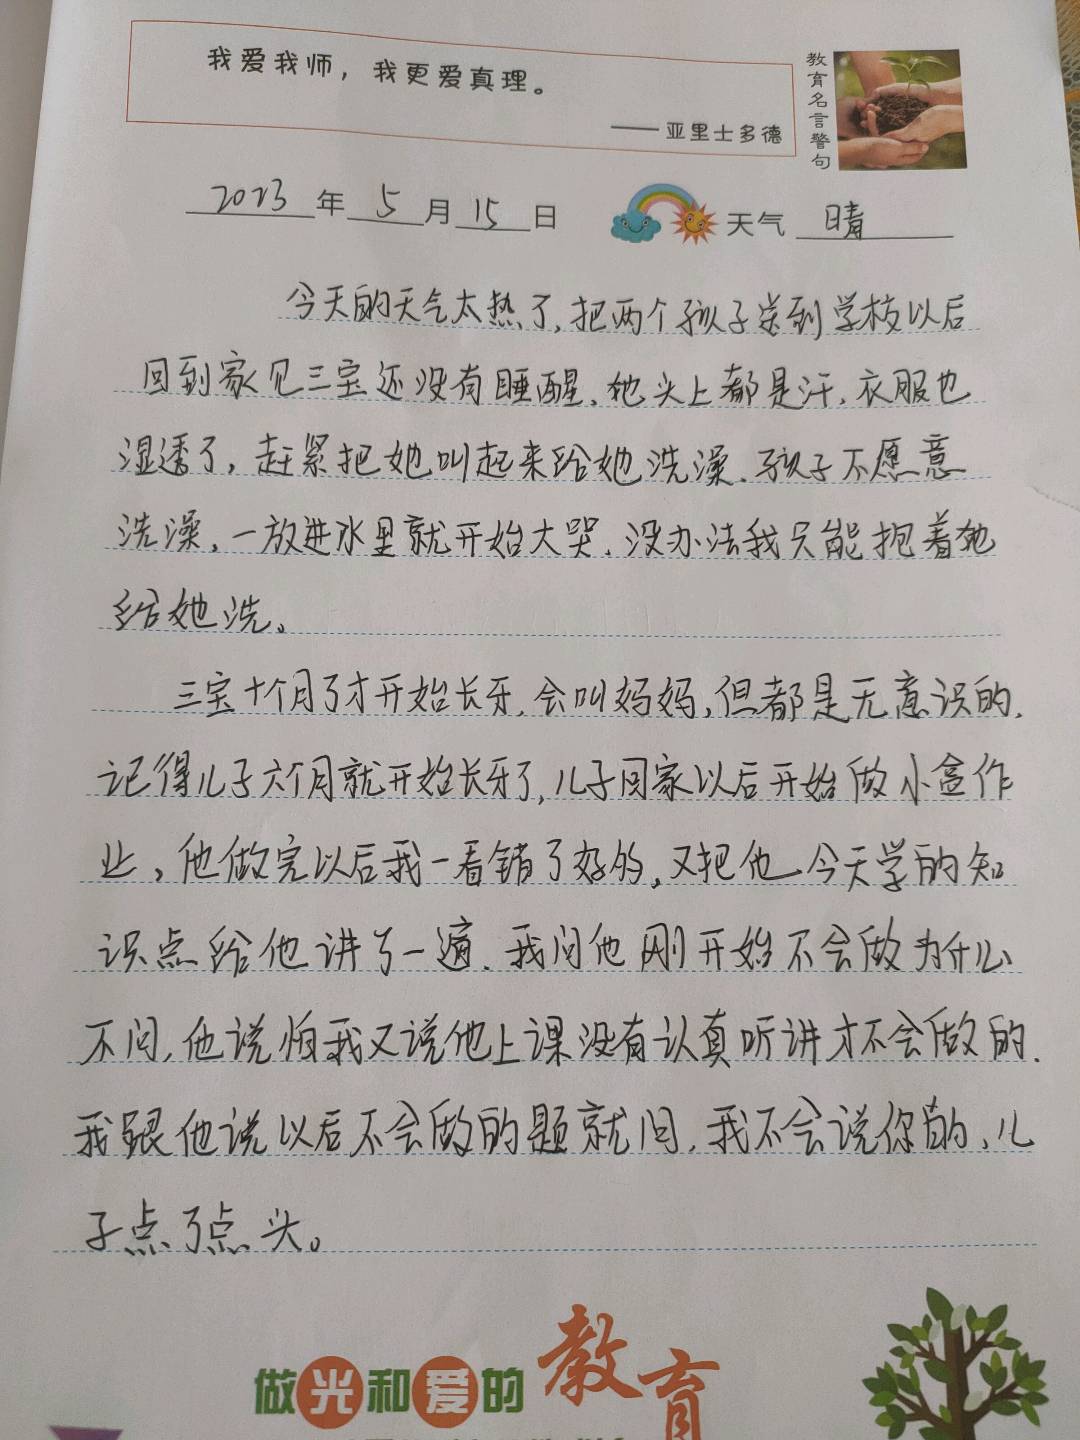 我爱我师，我更爱真理。
——亚里士多德
教育名言警句
2023年5月15日 天气 晴
今天的天气太热了，把两个孩子送到学校以后
回到家见三宝还没有睡醒，她头上都是汗，衣服也
湿透了，赶紧把她叫起来给她洗澡.孩子不愿意
洗澡，一放进水里就开始大哭，没办法我只能抱着她
给她洗。
三宝十个月了才开始长牙，会叫妈妈，但都是无意识的，
记得儿子六个月就开始长牙了，儿子回家以后开始做小盒作
业，他做完以后我一看错了好的，又把他今天学的知
识点给他讲了一遍.我问他刚开始不会做为什么
不问，他说怕我又说他上课没有认真听讲才不会做的.
我跟他说以后不会做的题就问，我不会说你的，儿
子点了点头。
做光和爱的教育